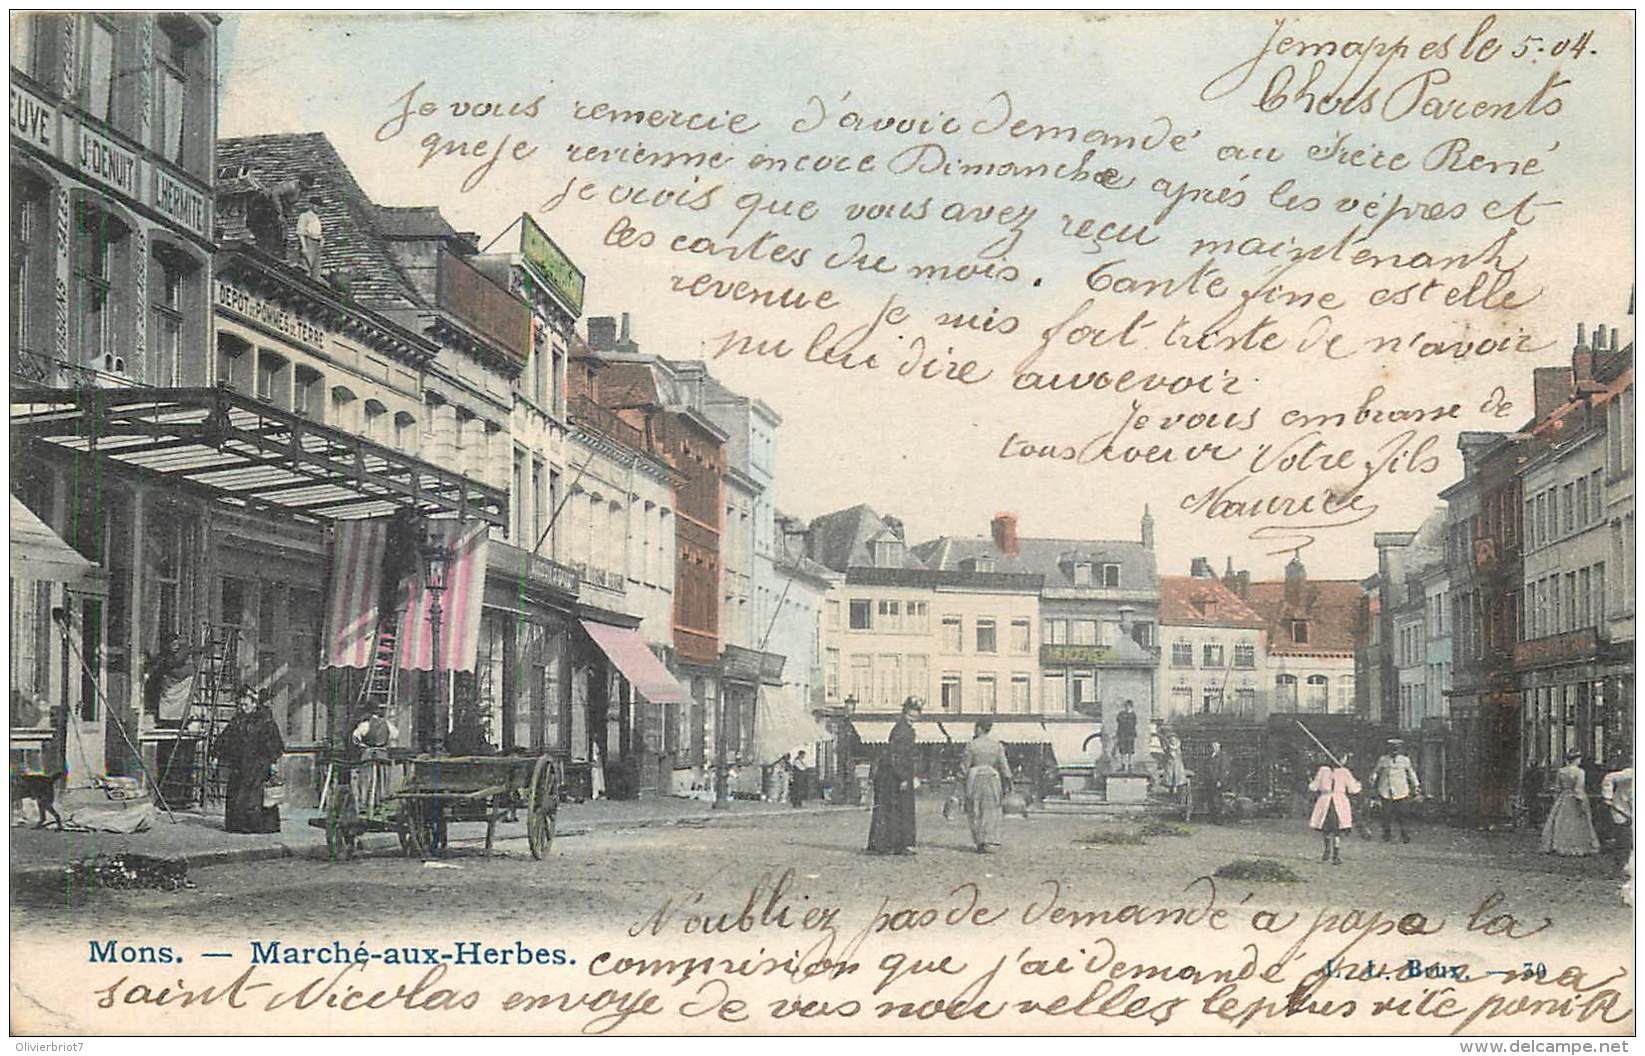 Jemappes le 5.04.
Chers Parents
Je vous remercie d'avoir demandé au frère René
que je revienne encore Dimanche après les vêpres et
je crois que vous avez reçu maintenant
les cartes du mois. Tante fine est elle
revenue je suis fort triste de n'avoir
pu lui dire aurevoir.
Je vous embrasse de
tous coeur Votre fils
Maurice
EUVE
J. DENUIT
LHERMITE
DEPOT DE POMMES DE TERRE
N'oubliez pas de demandé a papa la
Mons. — Marché-aux-Herbes.
comprision que j'ai demandé pour ma
L. L. Brux. — 30
saint Nicolas envoye de vos nouvelles le plus vite
Olivierbriot7
www.delcampe.net